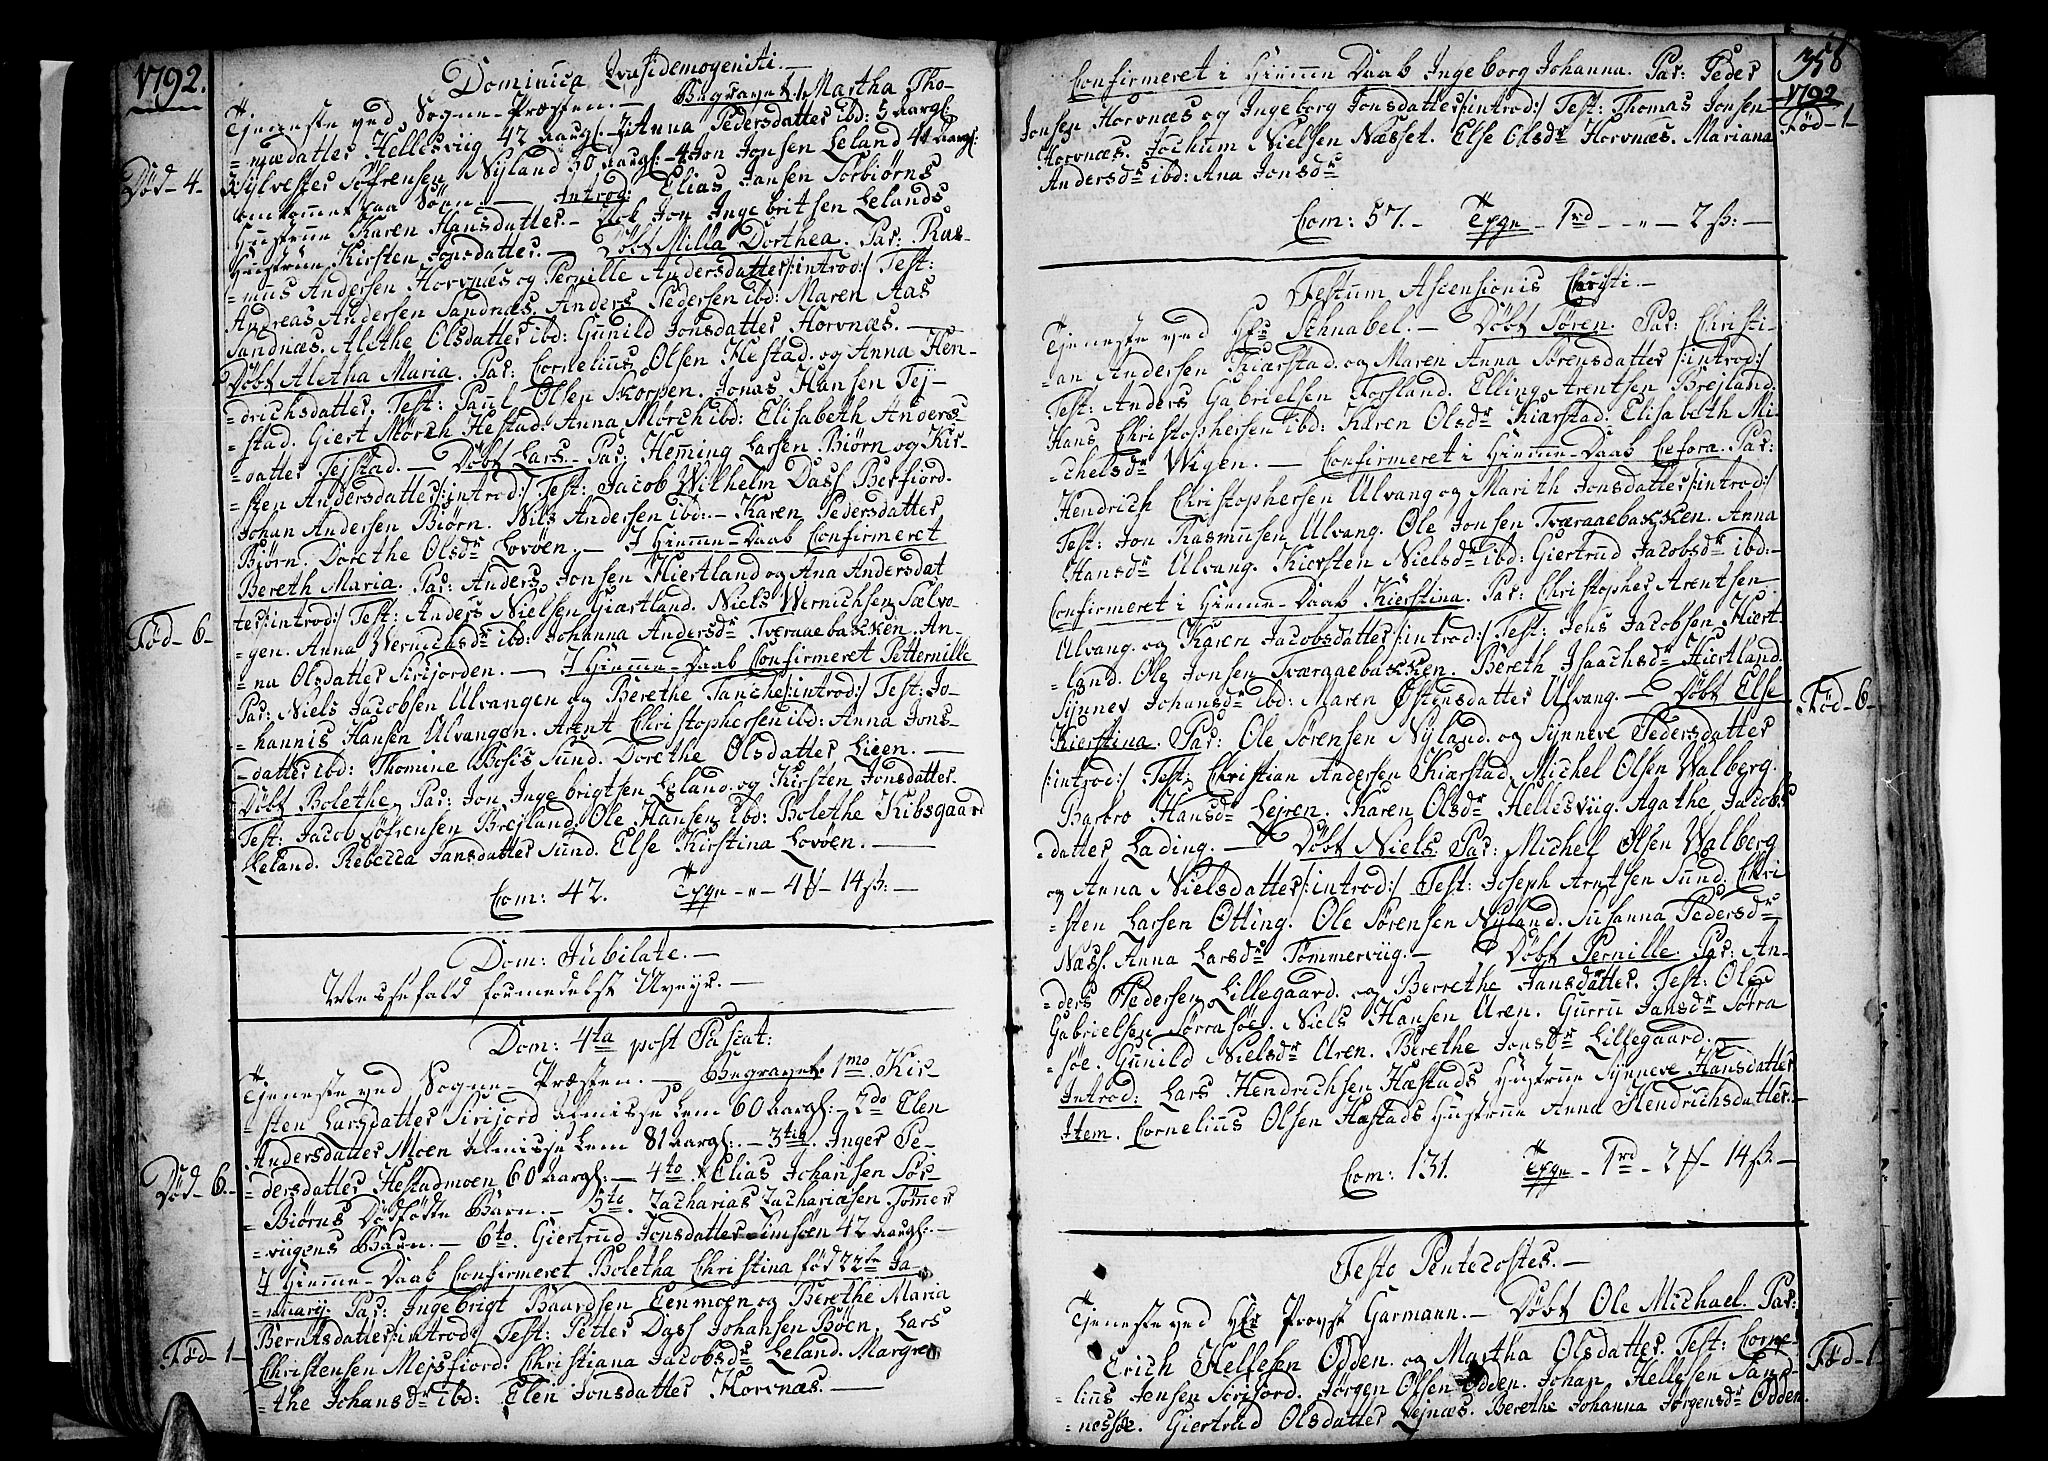 1792.
Dominica Quasidemogeniti.—
Tjeneste ved Sogne-Præsten.— Begravet. 1. Martha Tho-
=mædatter Hellesviig 42 aargl: 2. Anna Pedersdatter ibd: 5 aargl:
Død-4- Sylvester Søfrensen Nyland 30 aargl:-4. Jon Jonsen Leland 41 aargl:
omkommet paa Søen.— Introd: Elias Jansen Sørbiørns
Hustrue Karen Hansdatter.— Nok Jon Ingebritsen Lelands
Hustrue Kirsten Jonsdatter.— Døbt Milla Dorthea. Par: Ras-
=mus Andersen Horvnæs og Pernille Andersdatter/:introd:/ Test:
Andreas Andersen Sandnæs. Anders Pedersen ibd: Maren Aas
Sandnæs. Alethe Olsdatter ibd: Gunild Jonsdatter Horvnæs.—
Døbt Aletha Maria. Par: Cornelius Olsen Hestad. og Anna Hen-
=drichsdatter. Test: Paul Olsen Skorpen. Jonas Hansen Tej-
=stad. Giert Mørch Hestad. Anna Mørch ibd: Elisabeth Anders
=datter Tejstad.— Døbt Lars. Par: Hemming Larsen Biørn og Kir-
=sten Andersdatter/:introd:/ Test: Jacob Wilhelm Dass Berfiord.
Johan Andersen Biørn. Nils Andersen ibd:- Karen Pedersdatter
Biørn. Dorethe Olsdr Lovøen.— I Hiemme-Daab Confirmeret
Bereth Maria. Par: Anders Jonsen Hiertland og Ana Andersdat
Fød-6- ter/:introd:/ Test: Anders Nielsen Giærtland. Niels Wernichsen Sælvo-
=gen. Anna Wernichsdr ibd: Johanna Andersdr Tveraaebakken. An-
=na Olsdatter Sirijorden.— I Hiemme-Daab Confirmeret Petternille
Par: Niels Jacobsen Ulvangen og Berethe Tanche/:introd:/ Test: Jo-
=hannis Hansen Ulvangen. Arent Christophersen ibd: Anna Jons-
=datter ibd: Thomine Bosis Sund. Dorethe Olsdatter Lieen.—
Døbt Bolethe. Par: Jon Ingebrigtsen Leland. og Kirsten Jonsdatter.
Test: Jacob Søfrensen Brejland. Ole Hansen ibd: Bolethe Kibsgaard
Leland. Rebecca Jansdatter Sund. Else Kirstina Lovøen.—
Com: 42. Tegn - " - 4 - 14 ß:-
Dom: Jubilate.—
Messefald formedelst Uveyr.—
Dom: 4ta post Pascat:
Tjeneste ved Sogne-Præsten.— Begravet. 1mo. Kir-
sten Larsdatter Sirijord almisse Lem 60 aargl:- 2do Elen
Andersdatter Moen almisse Lem 81 aargl:.- 3tia. Inger Pe-
Død-6- =dersdatter Hestadmoen 60 aargl:- 4to Elias Johansen Sør
=Biørns Dødfødte Barn.— 5to. Zacharias Zachariasen Tømmer
=viigens Barn.— 6to. Giertrud Jonsdatter Simsøen 42 aargl:-
I Hiemme-Daab Confirmeret Boletha Christina fød 22de Ja-
=nuarij. Par: Ingebrigt Baardsen Eenmoen og Berethe Maria
Berntsdatter/:introd:/ Test: Petter Dass Johansen Bøen. Lars
Fød-1- Christensen Mejsfiord. Christiana Jacobsdr Leland. Margre
the Johansdr ibd: Elen Jonsdatter Horvnæs.—
358
1792
Confirmeret i Hiemme Daab Ingeborg Johanna. Par: Peder
Jonsen Horvnæs og Ingeborg Jonsdatter/:introd:/ Test: Thomas Jonsen Fød-1-
Horvnæs. Jochum Nielsen Næsset. Else Olsdr Horvnæs. Mariana
Andersdr ibd: Ana Jonsdr
Com: 57.- Tegn - 1rd - - " - 2 ß:-
Festum Ascensionis Christi.—
Tjeneste ved Hr Schnabel.— Døbt Søren. Par: Christi-
=an Andersen Kiærstad. og Maren Anna Sørensdatter/:introd:/
Test: Anders Gabrielsen Forsland. Elling Arentsen Brejland.
Hans Christophersen ibd: Karen Olsdr Kiærstad. Elisabeth Mi-
=chelsdr Wigen.— Confirmeret i Hiemme-Daab Cefora. Par:
Hendrich Christophersen Ulvang og Marith Jonsdatter/:introd:/
Test: Jon Rasmusen Ulvang. Ole Jonsen Tværaaebakken. Anna
Hansdr Ulvang. Kiersten Nielsdr ibd: Giertrud Jacobsdr ibd:-
Confirmeret i Hiemme-Daab Kierstina. Par: Christopher Arentsen
Ulvang. og Karen Jacobsdatter/:introd:/ Test: Jens Jacobsen Hiert-
=land. Ole Jonsen Tværaaebakken. Bereth Isaachsdr Hiertland.
Synnev Johansdr ibd: Maren Østensdatter Ulvang.— Døbt Else Fød-6-
Kierstina. Par: Ole Sørensen Nyland. og Synneve Pedersdatter
/:introd:/ Test: Christian Andersen Kiærstad. Michel Olsen Walberg.
Barbro Hansdr Lejren. Karen Olsdr Hellesviig. Agathe Jacobs
=datter Lading.— Døbt Niels. Par: Michel Olsen Walberg
og Anna Nielsdatter/:introd:/ Test: Joseph Arntsen Sund. Chri
=sten Larsen Otting. Ole Sørensen Nyland. Susanna Pedersdr
Næss. Anna Larsdr Tømmerviig.— Døbt Pernille. Par: An-
=ders Pedersen Lillegaard. og Berrethe Jansdatter. Test: Ole
Gabrielsen Sørra søe. Niels Hansen Uren. Gurru Jansdr Sørra
søe. Gunild Nielsdr Uren. Berethe Jonsdr Lillegaard.—
Introd: Lars Hendrichsen Hæstads Hustrue Synneve Hansdatter
Item. Cornelius Olsen Hæstads Hustrue Anna Hendrichsdatter.-
Com: 131. Tegn - 1rd - 2 - 14 ß.-
Festo Pentecostes.—
Tjeneste ved Hr Provst Garmann.— Døbt Ole Michael. Par:
Erich Hellesen Odden. og Martha Olsdatter. Test: Corne- Fød-1-
=lius Jensen Sorifjord. Jørgen Olsen Odden. Johan Hellesen Sand-
=nessøe. Giertrud Olsdatter Lejnæs. Berethe Johanna Jørgensdr Odden.